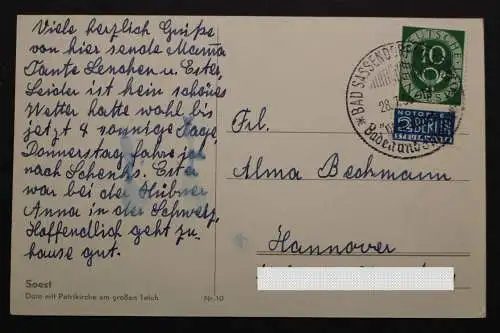 Viele herzlich Grüße
von hier sende Mama
Tante Lenchen u. Ester,
Leider ist kein schönes
Wetter hatte wohl bis
jetzt 4 sonnige Tage,
Donnerstag fahre ich
nach Schenks. Ester
war bei der Hübner
Anna in der Schweiz,
Hoffendlich geht zu-
hause gut.
Soest
Dom mit Petrikirche am großen Teich
Nr. 10
BAD SASSENDORF
28.
DEUTSCHE
10
NOTOPFER
2 BERLIN
STEUERMARKE
Frl.
Alma Bechmann
Hannover